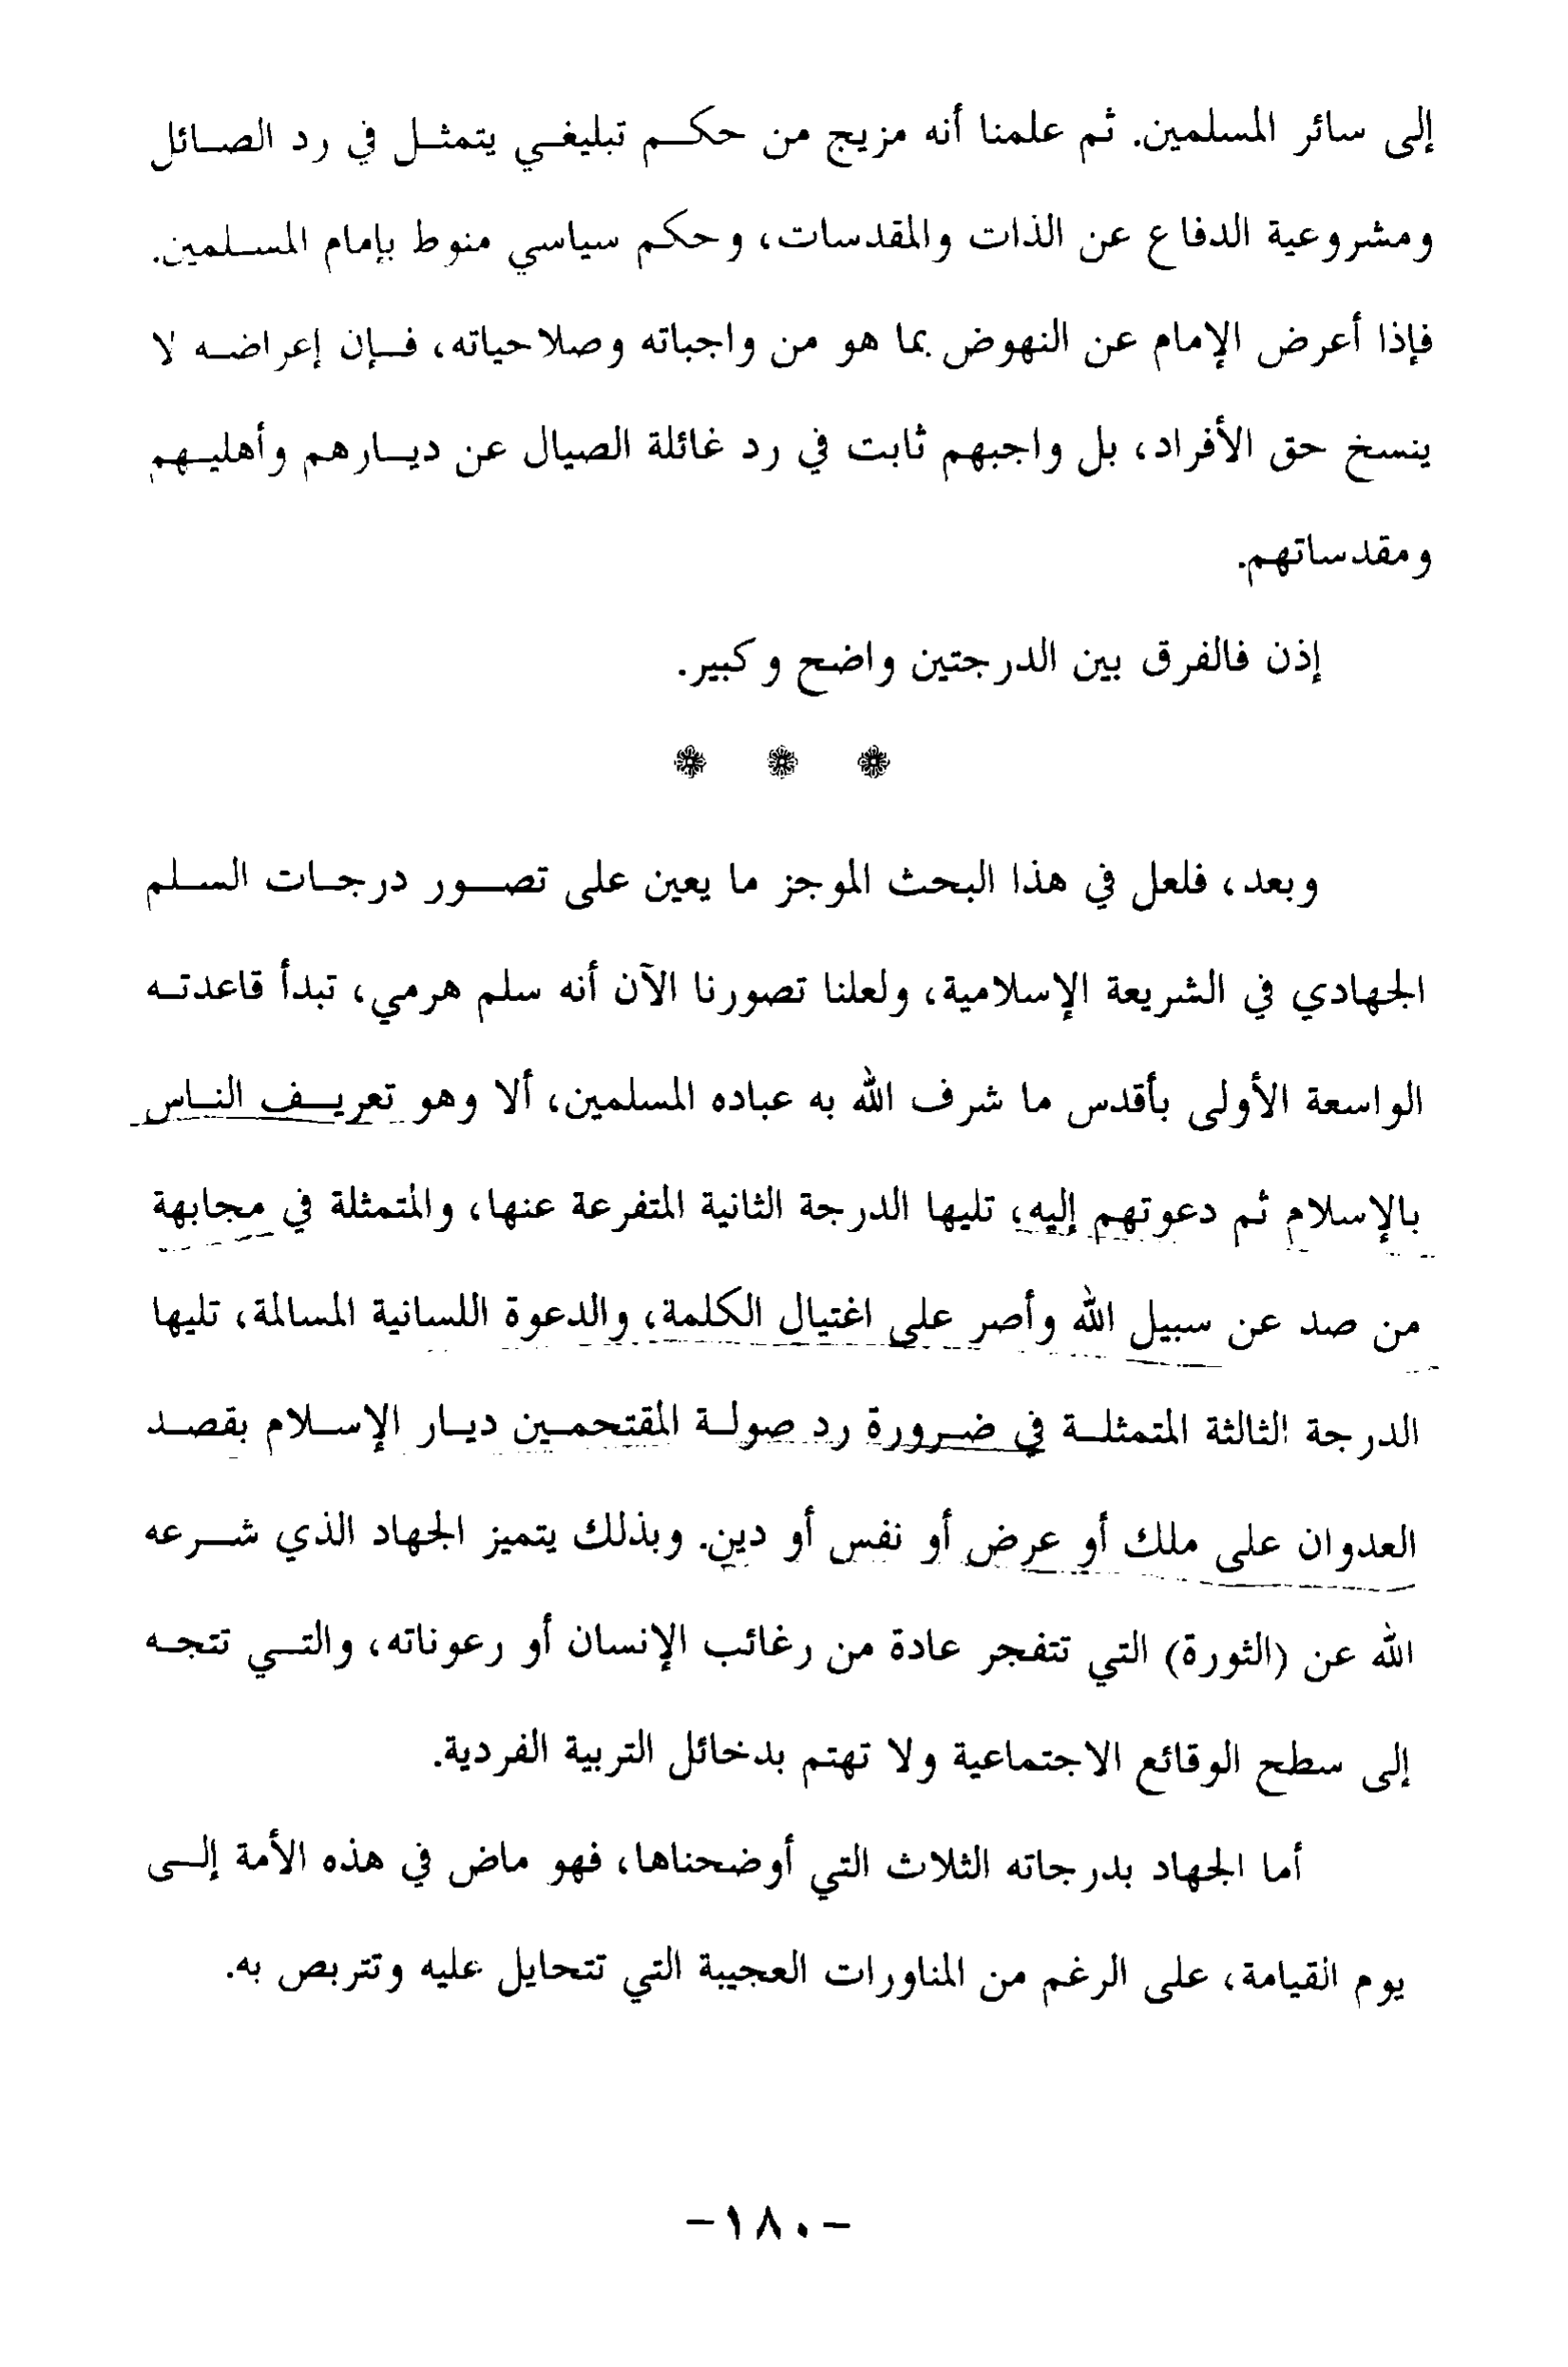 إلى سائر المسلمين. ثم علمنا أنه مزيج من حكم تبليغي يتمثل في رد الصائل
ومشروعية الدفاع عن الذات والمقدسات، وحكم سياسي منوط بإمام المسلمين.
فإذا أعرض الإمام عن النهوض بما هو من واجباته وصلاحياته، فإن إعراضه لا
ينسخ حق الأفراد، بل واجبهم ثابت في رد غائلة الصيال عن ديارهم وأهليهم
ومقدساتهم.
إذن فالفرق بين الدرجتين واضح وكبير.
وبعد، فلعل في هذا البحث الموجز ما يعين على تصور درجات السلم
الجهادي في الشريعة الإسلامية، ولعلنا تصورنا الآن أنه سلم هرمي، تبدأ قاعدته
الواسعة الأولى بأقدس ما شرف الله به عباده المسلمين، ألا وهو تعريف الناس
بالإسلام ثم دعوتهم إليه، تليها الدرجة الثانية المتفرعة عنها، والمتمثلة في مجابهة
من صد عن سبيل الله وأصر على اغتيال الكلمة، والدعوة اللسانية المسالمة، تليها
الدرجة الثالثة المتمثلة في ضرورة رد صولة المقتحمين ديار الإسلام بقصد
العدوان على ملك أو عرض أو نفس أو دين. وبذلك يتميز الجهاد الذي شرعه
الله عن (الثورة) التي تتفجر عادة من رغائب الإنسان أو رعوناته، والتي تتجه
إلى سطح الوقائع الاجتماعية ولا تهتم بدخائل التربية الفردية.
أما الجهاد بدرجاته الثلاث التي أوضحناها، فهو ماض في هذه الأمة إلى
يوم القيامة، على الرغم من المناورات العجيبة التي تتحايل عليه وتتربص به.
-١٨٠-